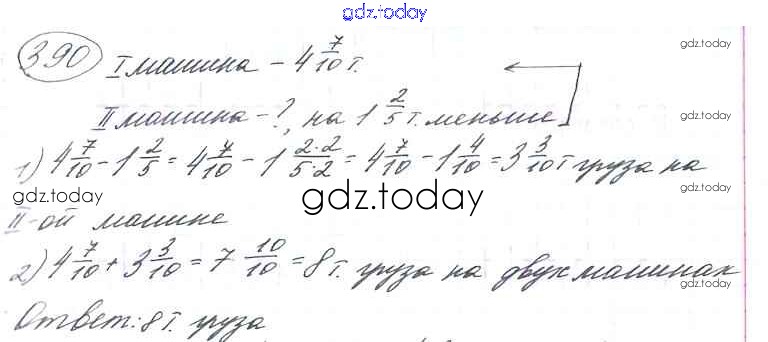 gdz.today
390 I машина - 4 7/10 т. gdz.today
II машина - ?, на 1 2/5 т. меньше gdz.today
1) 4 7/10 - 1 2/5 = 4 7/10 - 1 2·2/5·2 = 4 7/10 - 1 4/10 = 3 3/10 т груза на
gdz.today gdz.today gdz.today
II-ой машине
2) 4 7/10 + 3 3/10 = 7 10/10 = 8 т. груза на двух машинах
gdz.today
Ответ: 8 т. груза